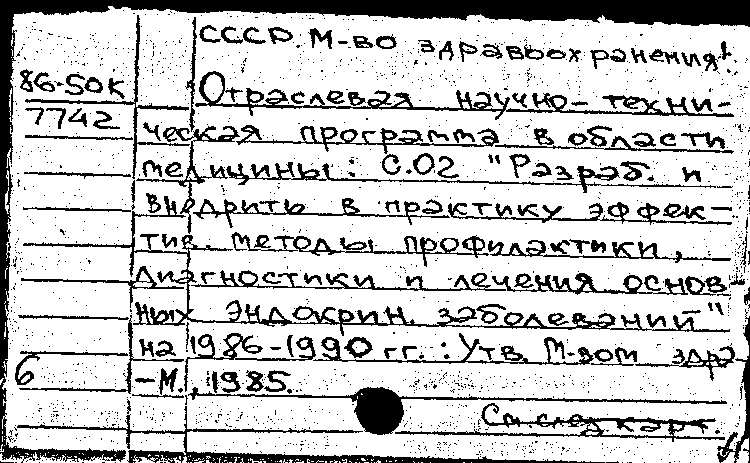 СССР. М-во здравоохранения
86-50К
7742
Отраслевая научно-техни-
ческая программа в области
медицины: С.02 "Разраб. и
внедрить в практику эффек-
тив. методы профилактики,
диагностики и лечения основ-
ных эндокрин. заболеваний"
на 1986-1990 гг. : Утв. М-вом здра
6
-М., 1985.
См. след карт.